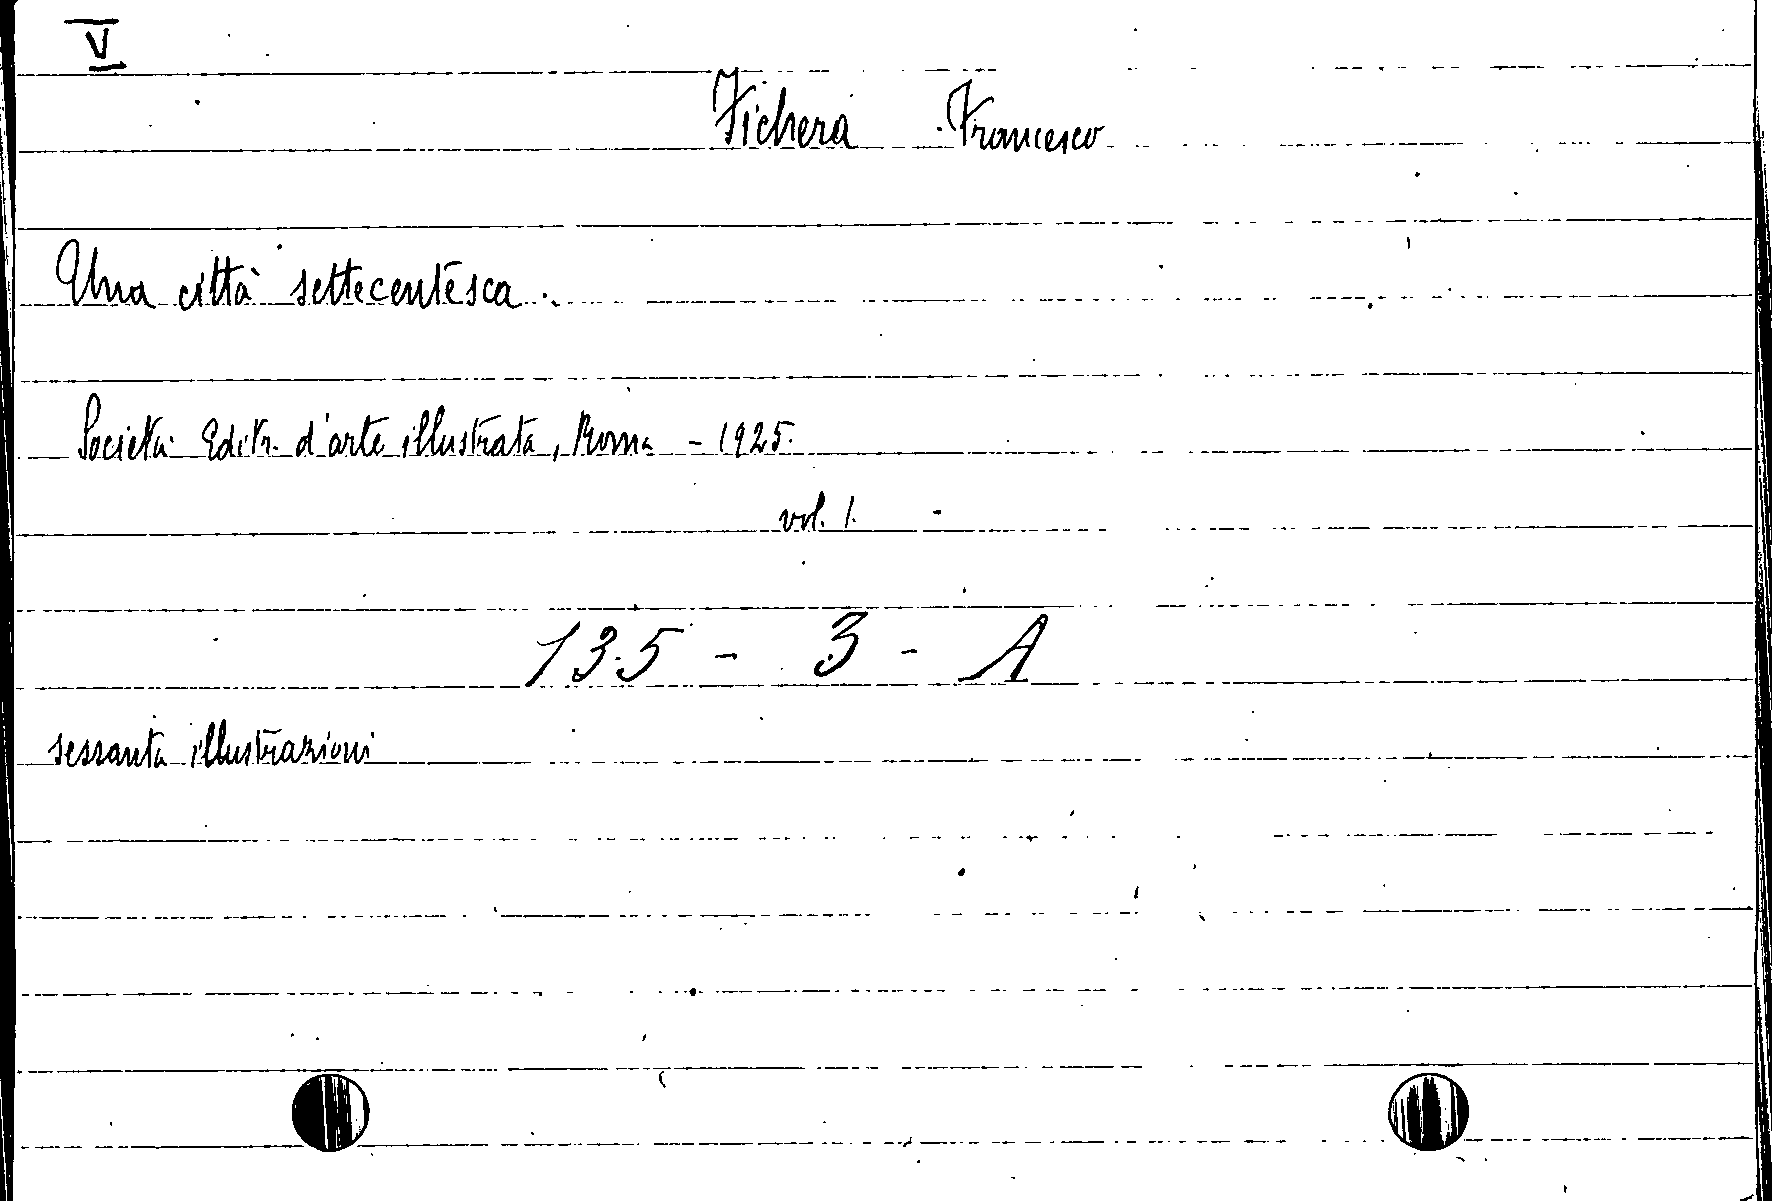 V
Fichera Francesco
Una città settecentesca.
Società Editr. d'arte illustrata, Roma - 1925.
vol. 1.
135 - 3 - A
sessanta illustrazioni